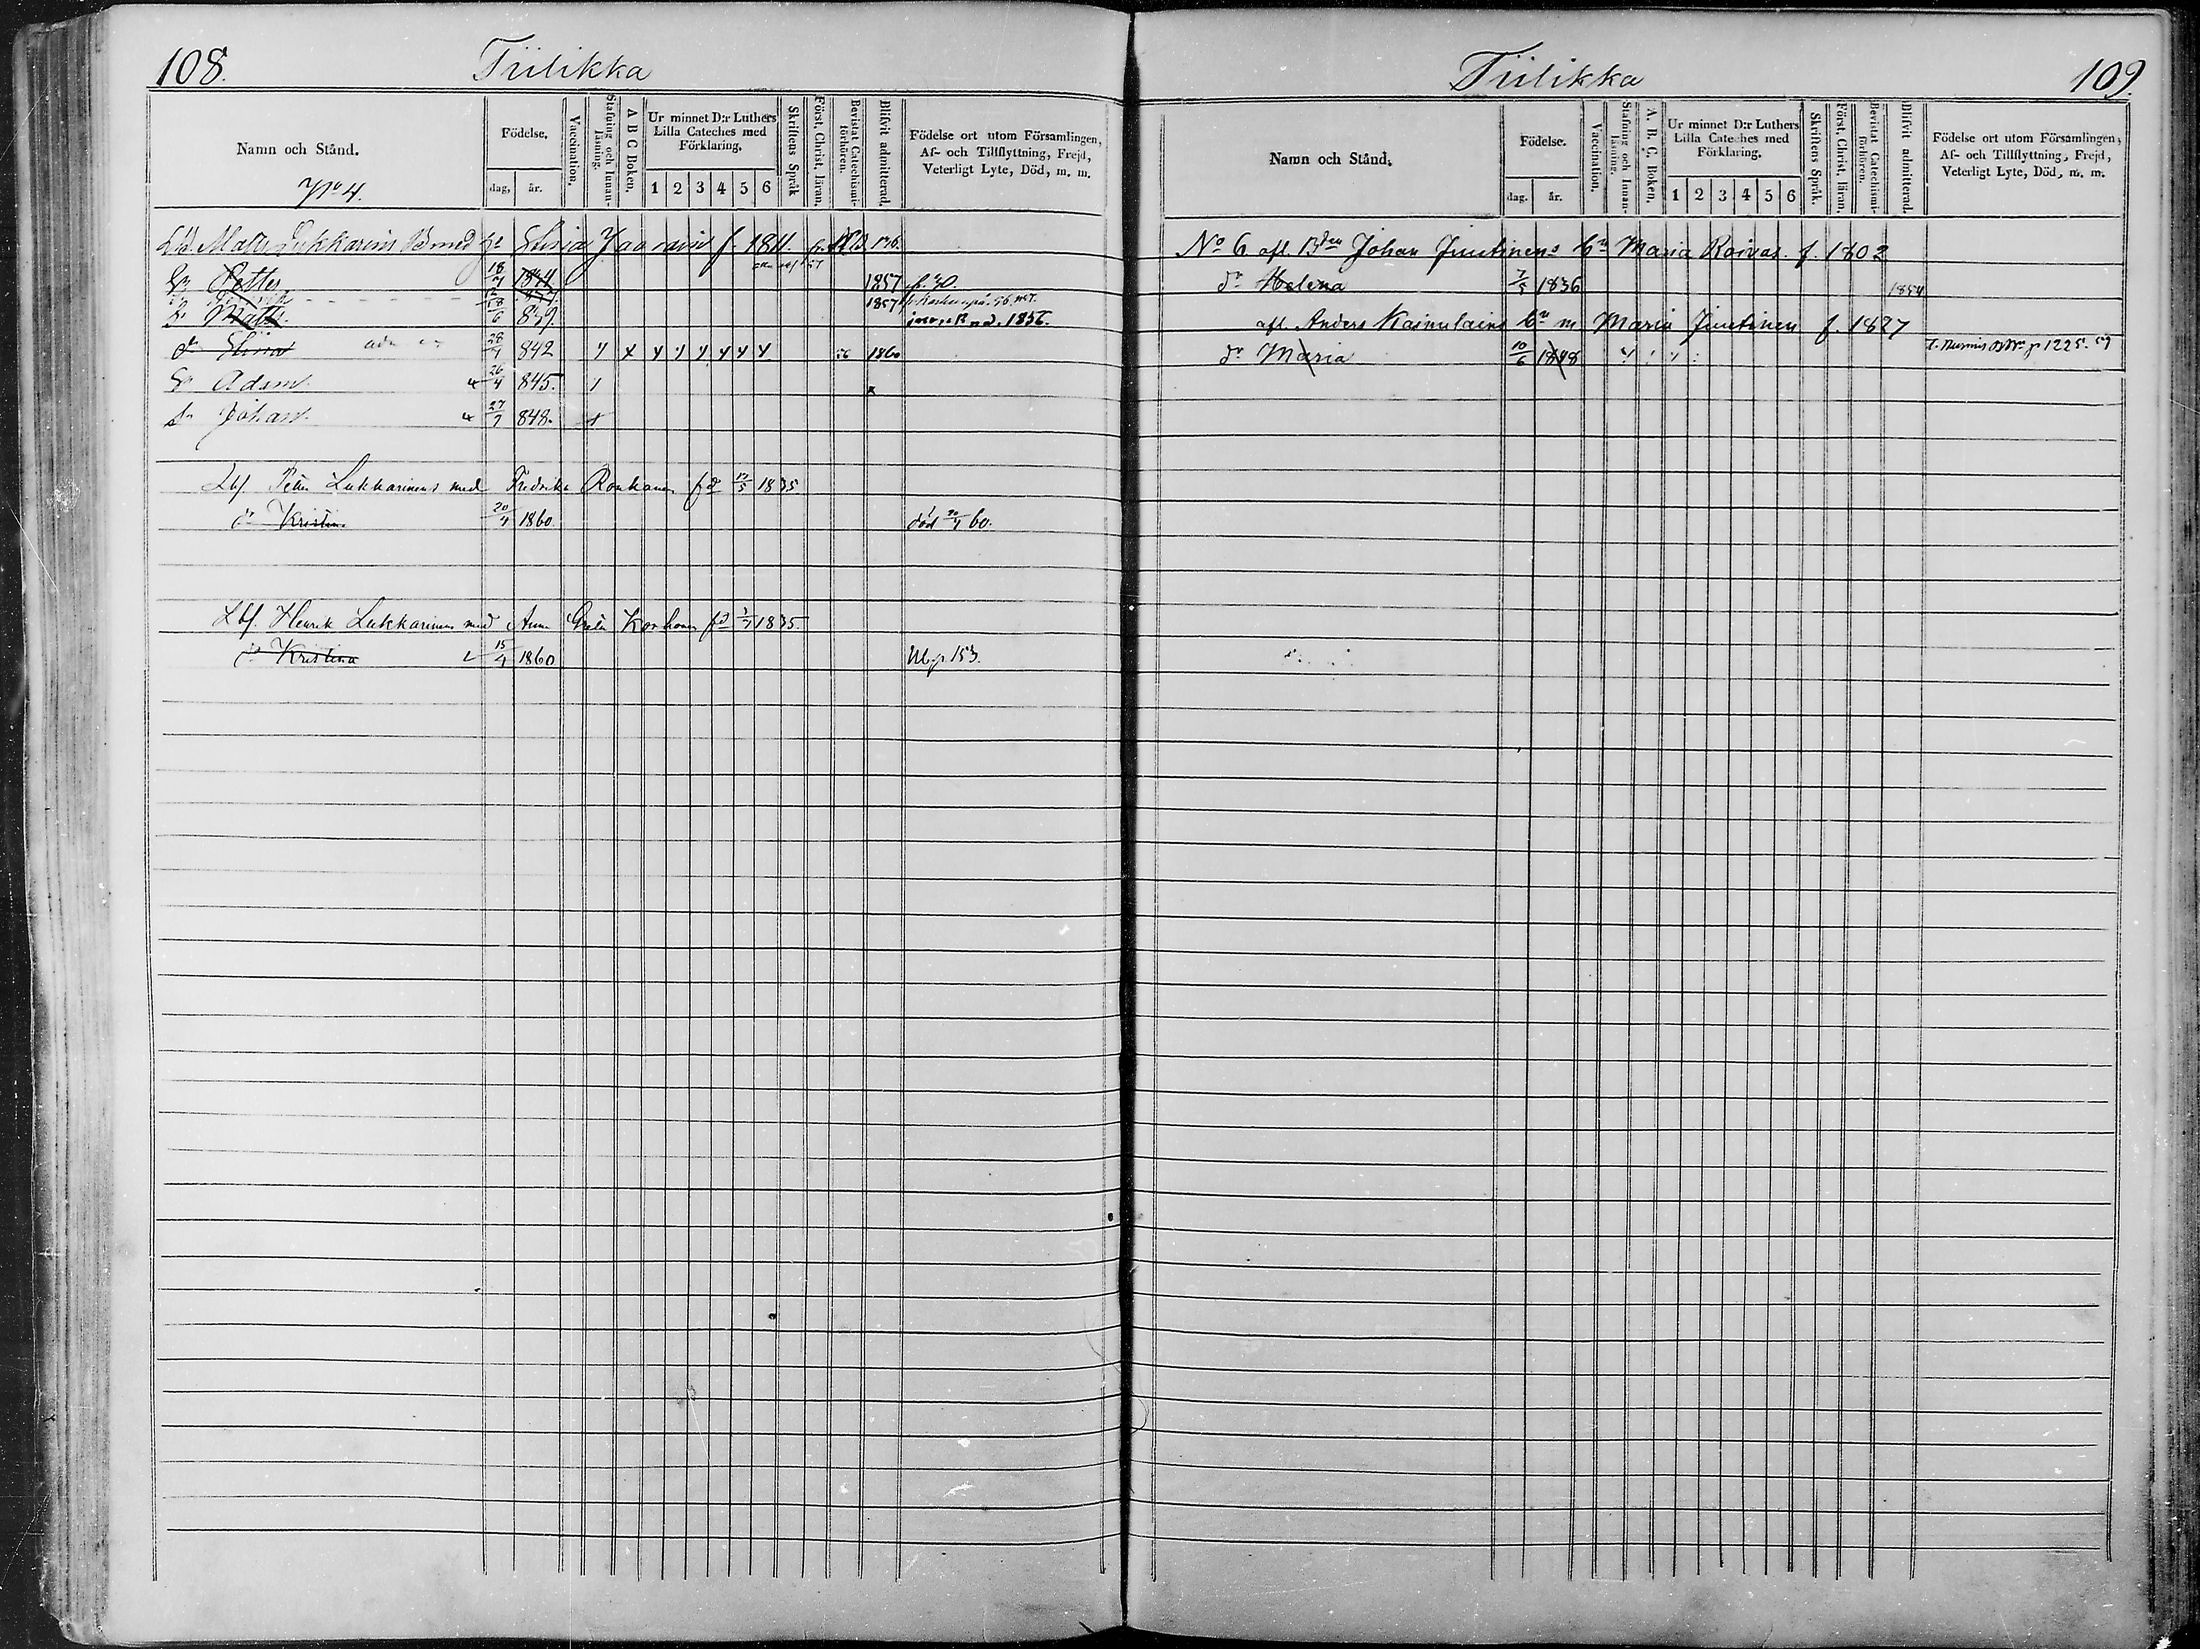 108.
Tiilikka
Namn och Stånd.
Födelse,
dag, år.
Vaccination.
Stafning och Innan-läsning.
A B C Boken.
Ur minnet D:r Luthers Lilla Cateches med Förklaring.
1 2 3 4 5 6
Skriftens Språk
Först. Christ. läran.
Bevistat Catechismi-förhören.
Blifvit admitterad.
Födelse ort utom Församlingen, Af- och Tillflyttning, Frejd, Veterligt Lyte, Död, m. m.
No 4.
Matts Lukkarins med Elisa Jaaraini f. 1811
Sn Petter 18/7 1834 1857 p. 30.
Henrik 837 1857
Sn Matts 18/6 839 1856.
dr Elisa 28/4 842 56 1860
Sn Adam 26/4 845.
Sn Johan 27/7 848.
Lbf. Petter Lukkarinens med Fredrika Ronkanen fd 1835
dr Kristin. 20/4 1860 död 30/4 60.
Lbf. Henrik Lukkarinens med Anna Greta Korhonen fd 1835
dr Kristina 15/4 1860 Ub. p 153.
Tiilikka
109.
Namn och Stånd.
Födelse.
dag. år.
Vaccination.
Stafning och Innan-läsning.
A. B. C. Boken.
Ur minnet D:r Luthers Lilla Cateches med Förklaring.
1 2 3 4 5 6
Skriftens Språk.
Först. Christ. läran.
Bevistat Catechismi-förhören.
Blifvit admitterad.
Födelse ort utom Församlingen, Af- och Tillflyttning, Frejd, Veterligt Lyte, Död, m. m.
No 6 afl. Bden Johan Juutinens Ea Maria Roivas. f. 1802
dr Helena 7/5 1836 1854
afl. Anders Kainulains Ea m Maria Juutinen f. 1827
dr Maria 10/6 1848 T. Nurmis p 1225. 59